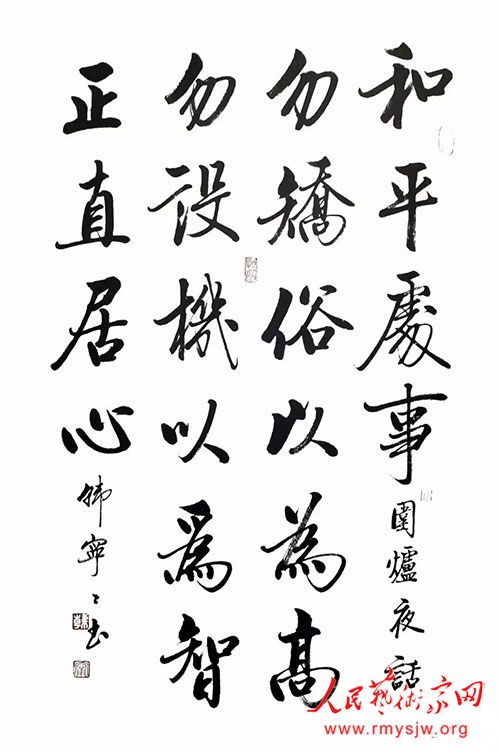 和平處事 圍爐夜話
勿矯俗以為髙
勿設機以爲智
正直居心 韩寧〻书
人民藝術家网
www.rmysjw.org